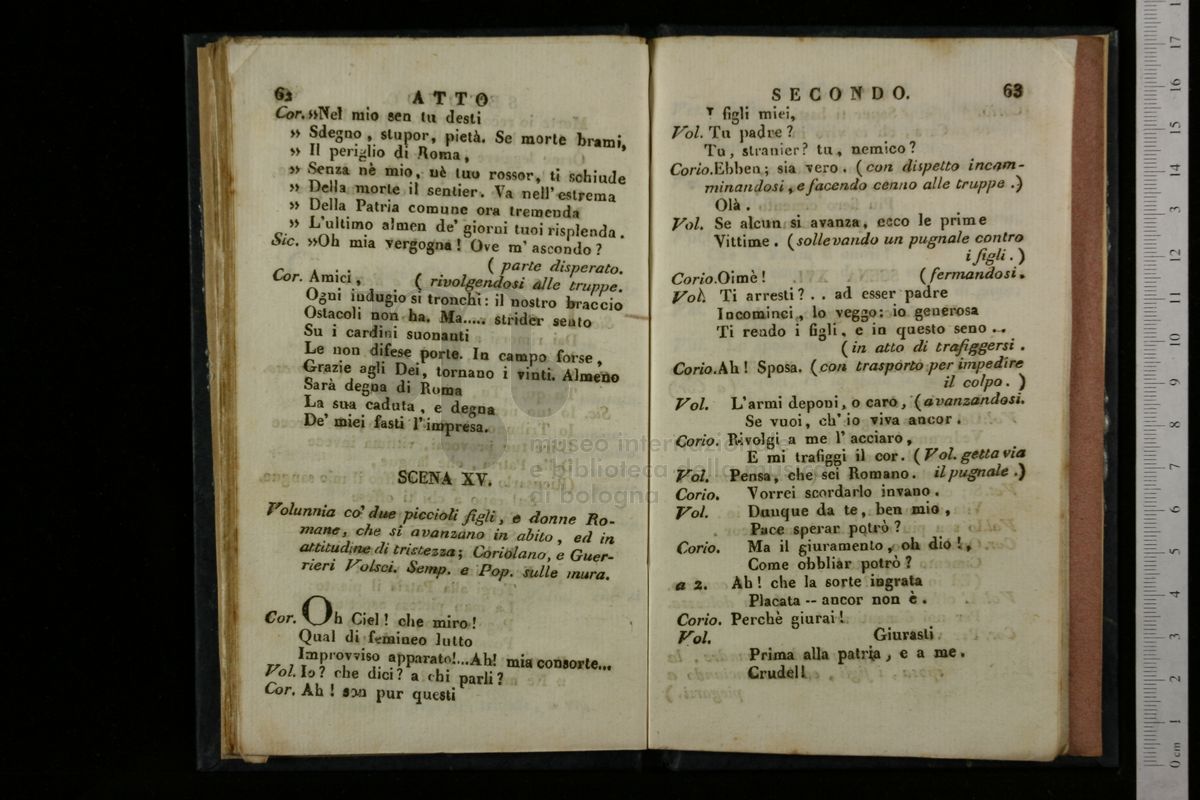 62 ATTO
Cor. »Nel mio sen tu desti
» Sdegno, stupor, pietà. Se morte brami,
» Il periglio di Roma,
» Senza nè mio, nè tuo rossor, ti schiude
» Della morte il sentier. Va nell' estrema
» Della Patria comune ora tremenda
» L'ultimo almen de' giorni tuoi risplenda.
Sic. »Oh mia vergogna! Ove m' ascondo?
( parte disperato.
Cor. Amici, ( rivolgendosi alle truppe.
Ogni indugio si tronchi: il nostro braccio
Ostacoli non ha. Ma..... strider sento
Su i cardini suonanti
Le non difese porte. In campo forse,
Grazie agli Dei, tornano i vinti. Almeno
Sarà degna di Roma
La sua caduta, e degna
De' miei fasti l'impresa.
SCENA XV.
Volunnia co' due piccioli figli, e donne Ro-
mane, che si avanzano in abito, ed in
attitudine di tristezza; Coriolano, e Guer-
rieri Volsci. Semp. e Pop. sulle mura.
Cor. Oh Ciel! che miro!
Qual di femineo lutto
Improvviso apparato!...Ah! mia consorte...
Vol. Io? che dici? a chi parli?
Cor. Ah! son pur questi
SECONDO. 63
I figli miei,
Vol. Tu padre?
Tu, stranier? tu, nemico?
Corio. Ebben; sia vero. (con dispetto incam-
minandosi, e facendo cenno alle truppe.)
Olà.
Vol. Se alcun si avanza, ecco le prime
Vittime. (sollevando un pugnale contro
i figli.)
Corio. Oimè! (fermandosi.
Vol. Ti arresti?.. ad esser padre
Incominci, lo veggo: io generosa
Ti rendo i figli, e in questo seno ..
(in atto di trafiggersi.
Corio. Ah! Sposa. (con trasporto per impedire
il colpo.)
Vol. L'armi deponi, o caro, (avanzandosi.
Se vuoi, ch' io viva ancor.
Corio. Rivolgi a me l' acciaro,
E mi trafiggi il cor. (Vol. getta via
Vol. Pensa, che sei Romano. il pugnale.)
Corio. Vorrei scordarlo invano.
Vol. Dunque da te, ben mio,
Pace sperar potrò?
Corio. Ma il giuramento, oh dio!,
Come obbliar potrò?
a 2. Ah! che la sorte ingrata
Placata -- ancor non è.
Corio. Perchè giurai!
Vol. Giurasti
Prima alla patria, e a me.
Crudel!
museo internazionale
e biblioteca della musica
di bologna
0 cm 1 2 3 4 5 6 7 8 9 10 11 12 13 14 15 16 17